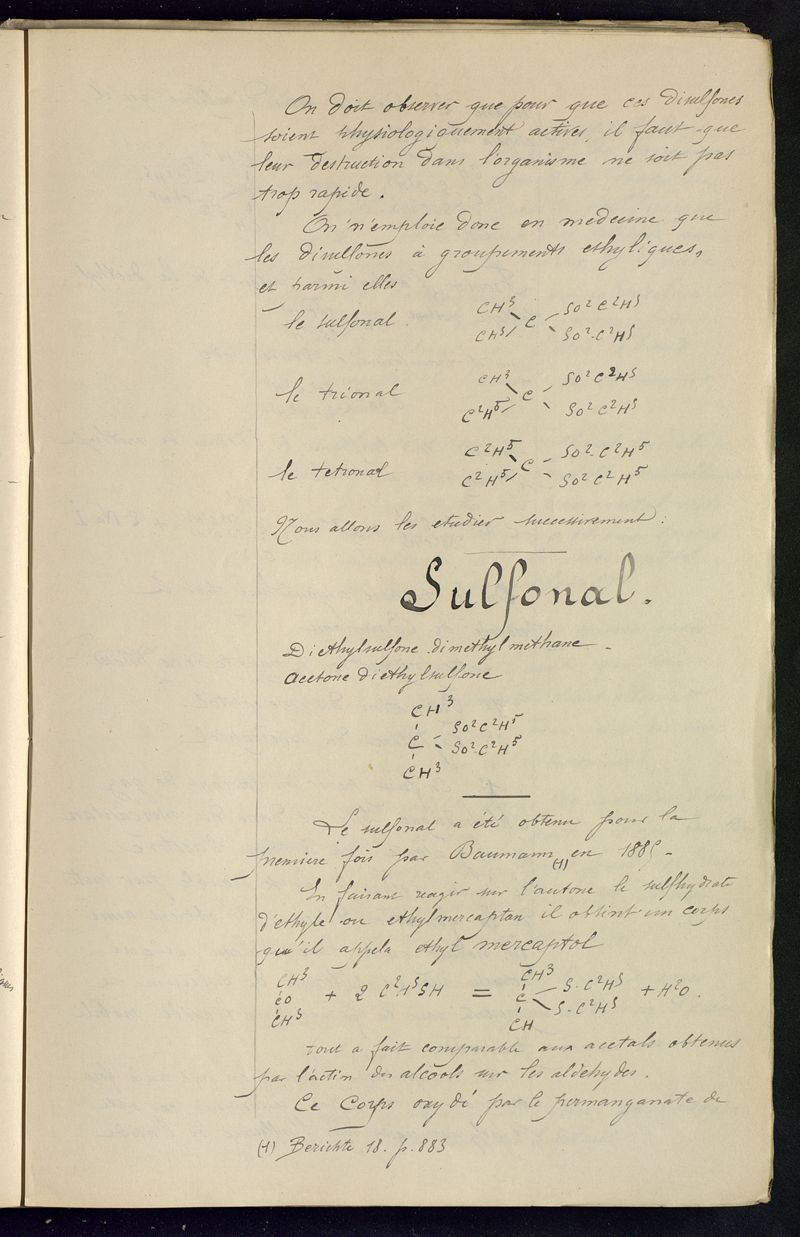 On doit observer que pour que ces disulfones
soient physiologiquement actives, il faut que
leur destruction dans l'organisme ne soit pas
trop rapide.
On n'emploie donc en medecine que
les disulfones à groupements ethyliques,
et parmi elles
le sulfonal. CH³ CH³ C SO² C²H⁵ SO² - C²H⁵
le trional CH³ C²H⁵ C SO² C²H⁵ SO² C²H⁵
le tetronal C²H⁵ C²H⁵ C SO² - C²H⁵ SO² C²H⁵
Nous allons les etudier successivement :
Sulfonal.
Diethylsulfone . dimethyl methane -
Acetone diethylsulfone
CH³
C SO² C²H⁵ SO² - C²H⁵
CH³
Le sulfonal a été obtenu pour la
premiere fois par Baumann (1) en 1885 -
En faisant reagir sur l'acetone le sulfhydrate
d'ethyle ou ethylmercaptan il obtint un corps
qu'il appela ethyl mercaptol
CH³ CO CH³ + 2 C²H⁵SH = CH³ C CH S - C²H⁵ S - C²H⁵ + H²O.
tout a fait comparable aux acetals obtenus
par l'actin des alcools sur les aldehydes.
Ce Corps oxydé par le permanganate de
(1) Berichte 18. p. 883